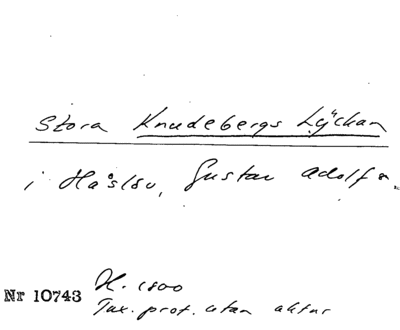 Stora Knudebergs Lyckan
i Håslöv, Gustav Adolfs.
H. 1800
Nr 10743
Tax. prot. utan aktnr